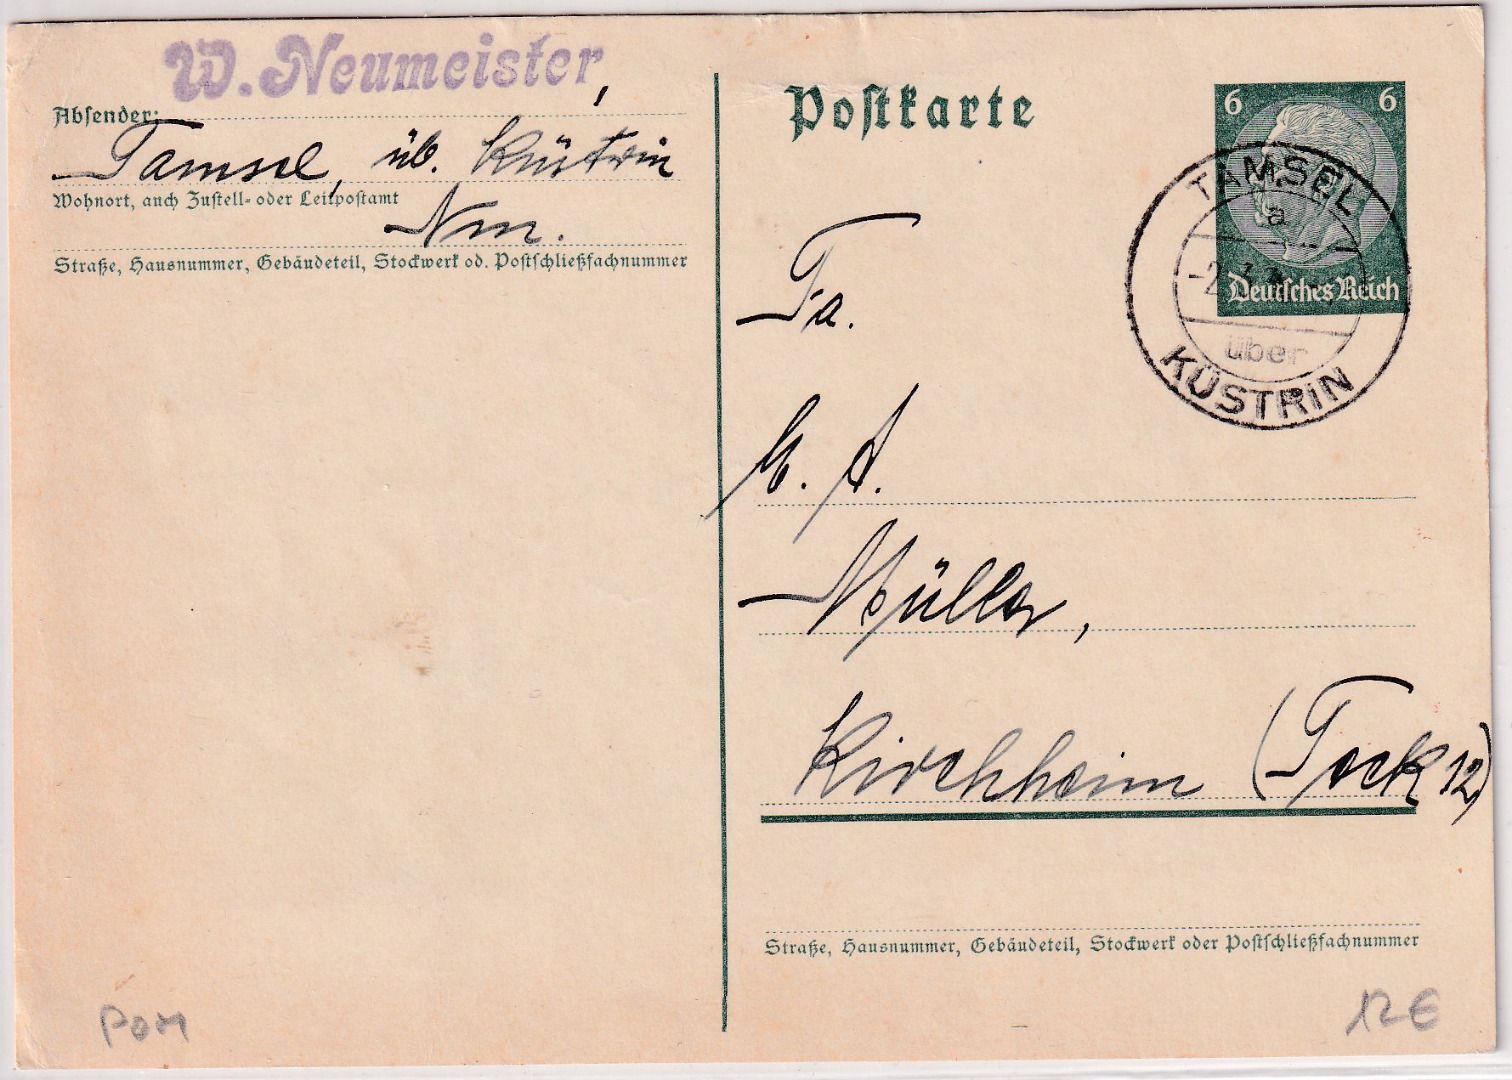 W. Neumeister,
Absender:
Tamsel, üb. Küstrin
Wohnort, auch Zustell- oder Leitpostamt
Nm.
Straße, Hausnummer, Gebäudeteil, Stockwerk od. Postschließfachnummer
Postkarte
6 6
Deutsches Reich
TAMSEL
a
über
KÜSTRIN
Fa.
A.
Müller,
Kirchheim (Teck 12)
Straße, Hausnummer, Gebäudeteil, Stockwerk oder Postschließfachnummer
POM
12€